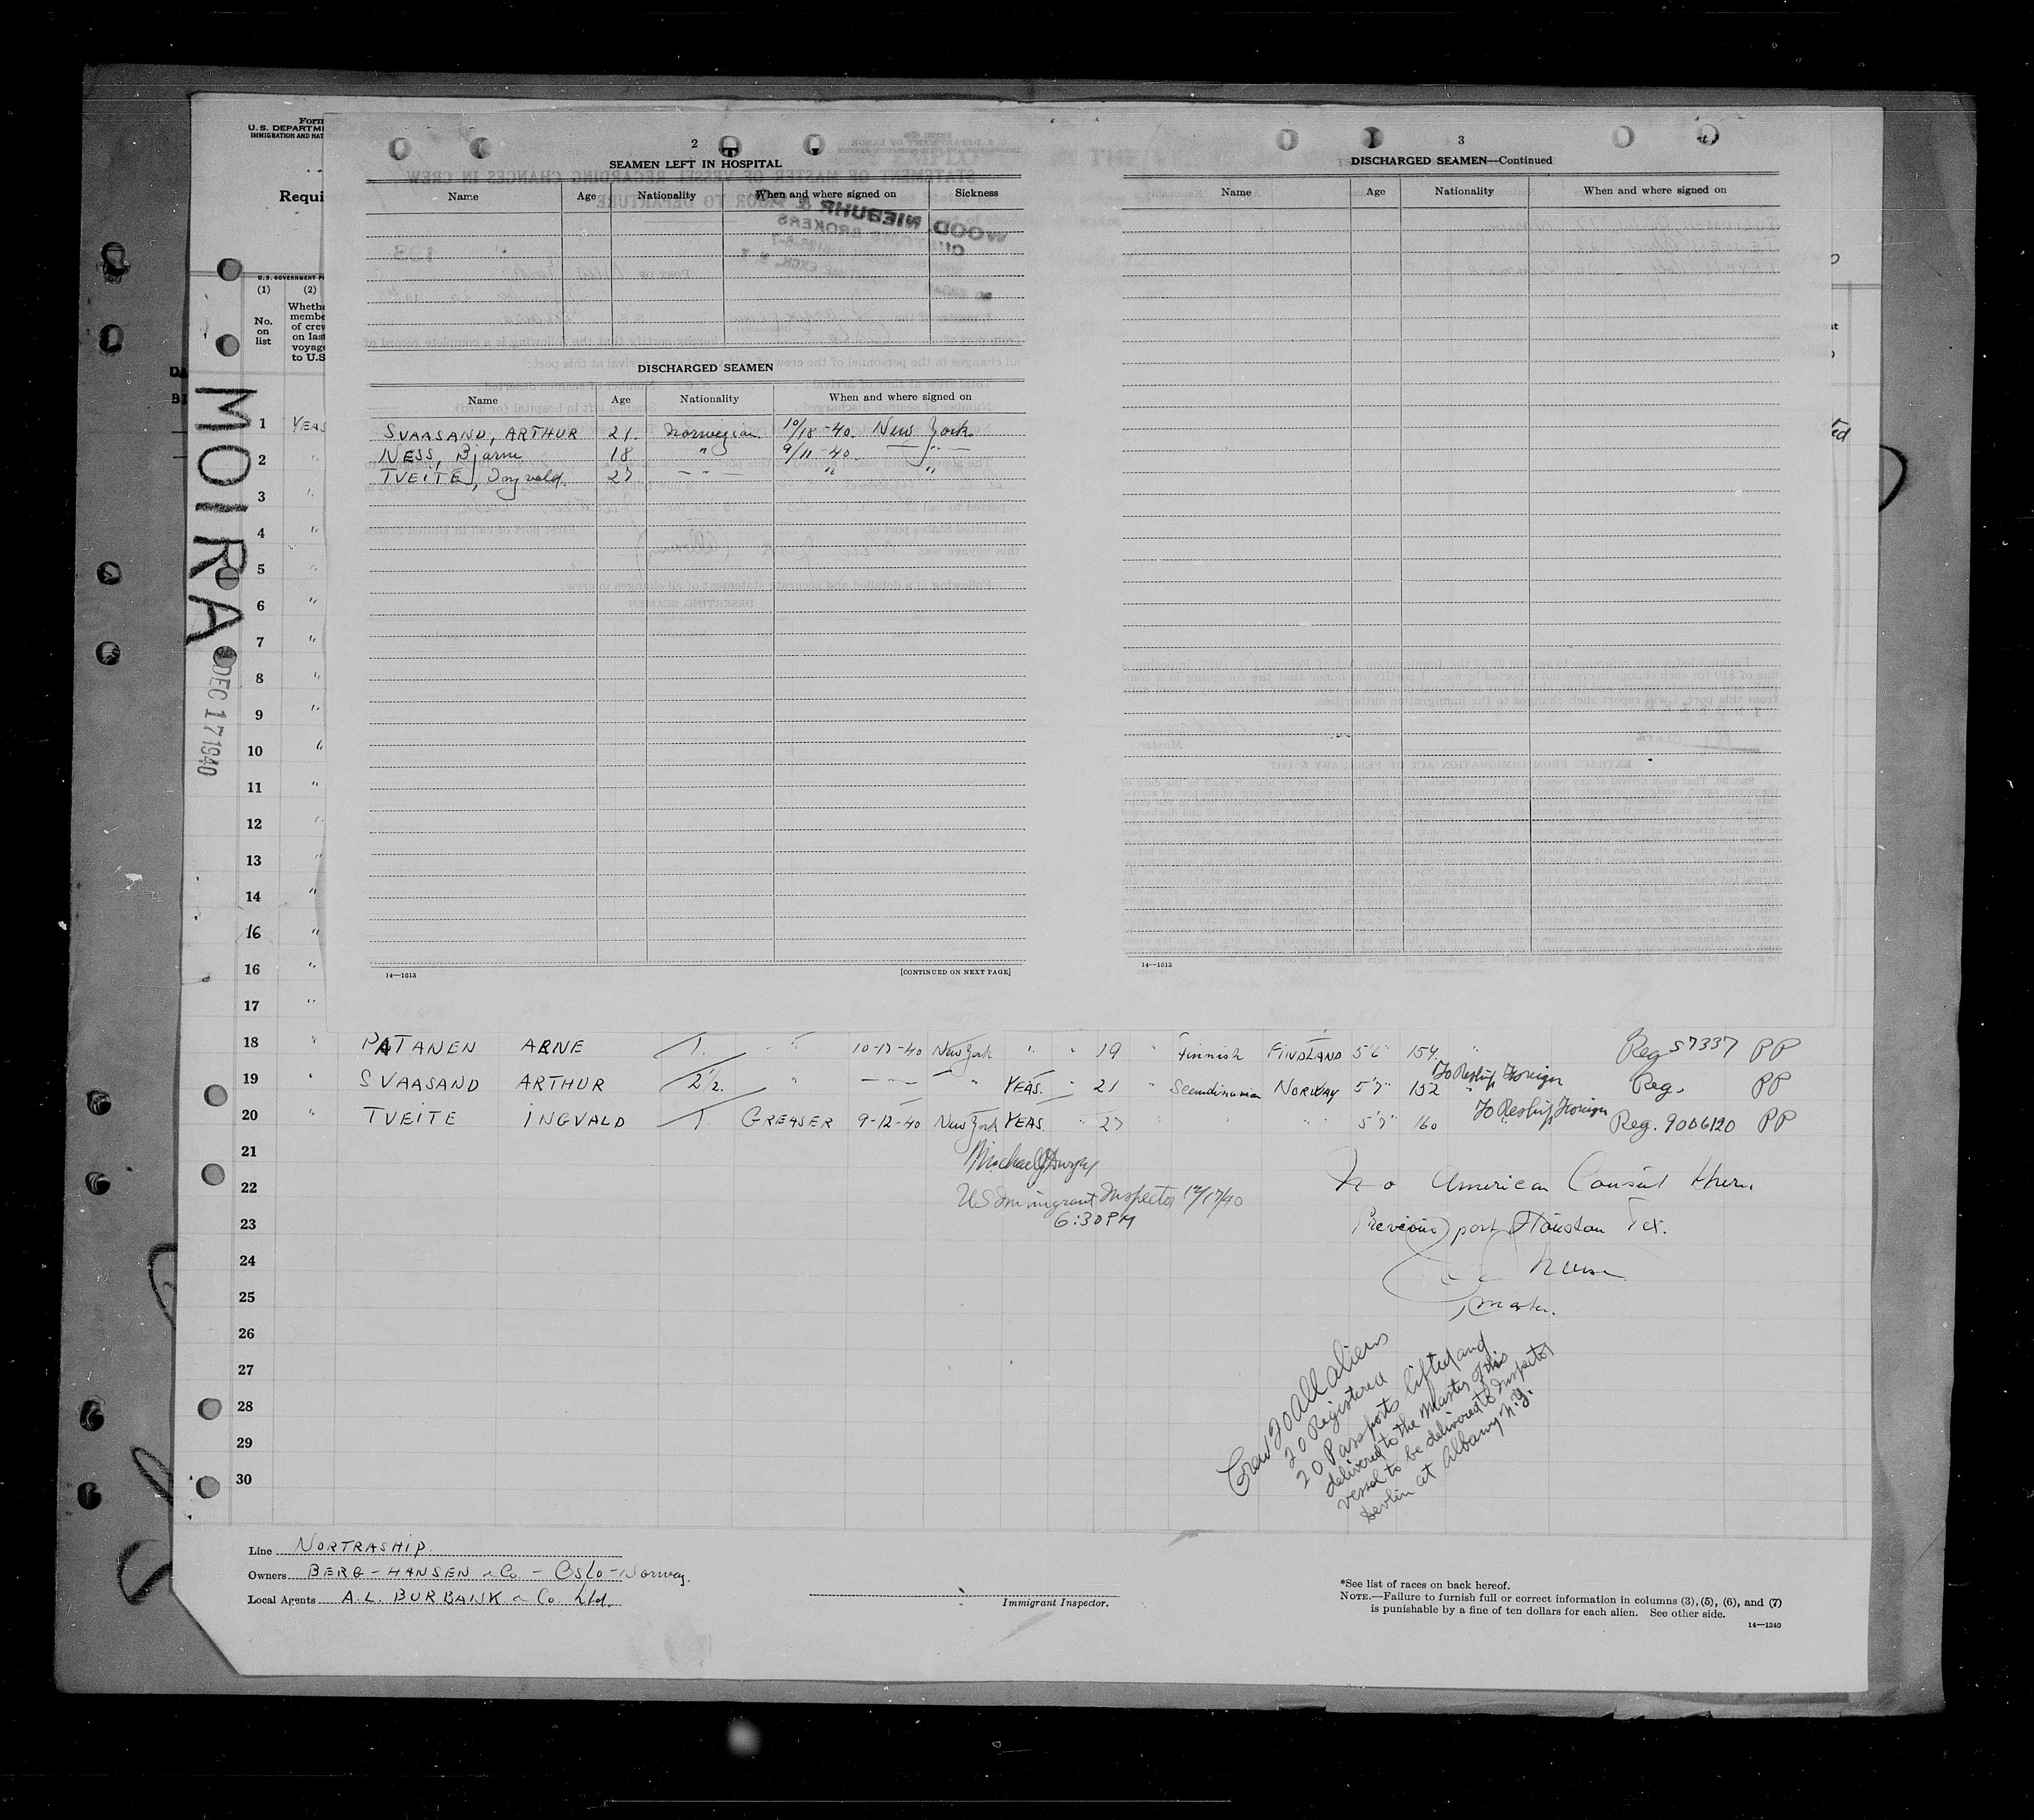 Form
U.S. DEPARTM
IMMIGRATION AND NAT
Requi
U.S. GOVERNMENT P
(1) (2)
No. on list
Whethe
membe
of crew
on last
voyage
to U.S
MOIRA
DEC 17 1940
2
SEAMEN LEFT IN HOSPITAL
Name Age Nationality When and where signed on Sickness
WOOD, NIEBUHR &
DISCHARGED SEAMEN
Name Age Nationality When and where signed on
SVAASAND, ARTHUR 21. Norwegian. 10/18-40. New York.
NESS, Bjarne 18 " 9/11-40. — " —
TVEITE, Ingvald. 27 - - - " "
14—1613 [CONTINUED ON NEXT PAGE]
3
DISCHARGED SEAMEN—Continued
Name Age Nationality When and where signed on
14—1613
1 YEAS
2 "
3 "
4 "
5 "
6 "
7 "
8 "
9 "
10 "
11 "
12 "
13 "
14 "
16 "
16 "
17 "
18 " PATANEN ARNE 1. - " 10-17-40 New York " " 19 " Finnish FINDLAND 5'6" 154 " Reg 57337 PP
19 " SVAASAND ARTHUR 2½. " — — " YEAS. " 21 " Scandinavian NORWAY 5'7" 152 " To Reship Foreign Reg. PP
20 " TVEITE INGVALD 1. GREASER 9-12-40 New York YEAS. " 27 " " " 5'7" 160 To Reship Foreign Reg. 9006120 PP
21
22
23
24
25
26
27
28
29
30
US Immigrant Inspector 12/17/40
6:30 PM
No American Consul there.
Previous port Houston Tex.
Master.
Crew 20 all aliens
20 Registered
20 Passports lifted and
delivered to the Master of this
vessel to be delivered to Inspector
Devlin at Albany N.Y.
Line NORTRASHIP.
Owners BERG-HANSEN & Co. - Oslo-Norway.
Local Agents A.L. BURBANK & Co. Ltd.
Immigrant Inspector.
*See list of races on back hereof.
NOTE.—Failure to furnish full or correct information in columns (3), (5), (6), and (7)
is punishable by a fine of ten dollars for each alien. See other side.
14—1240